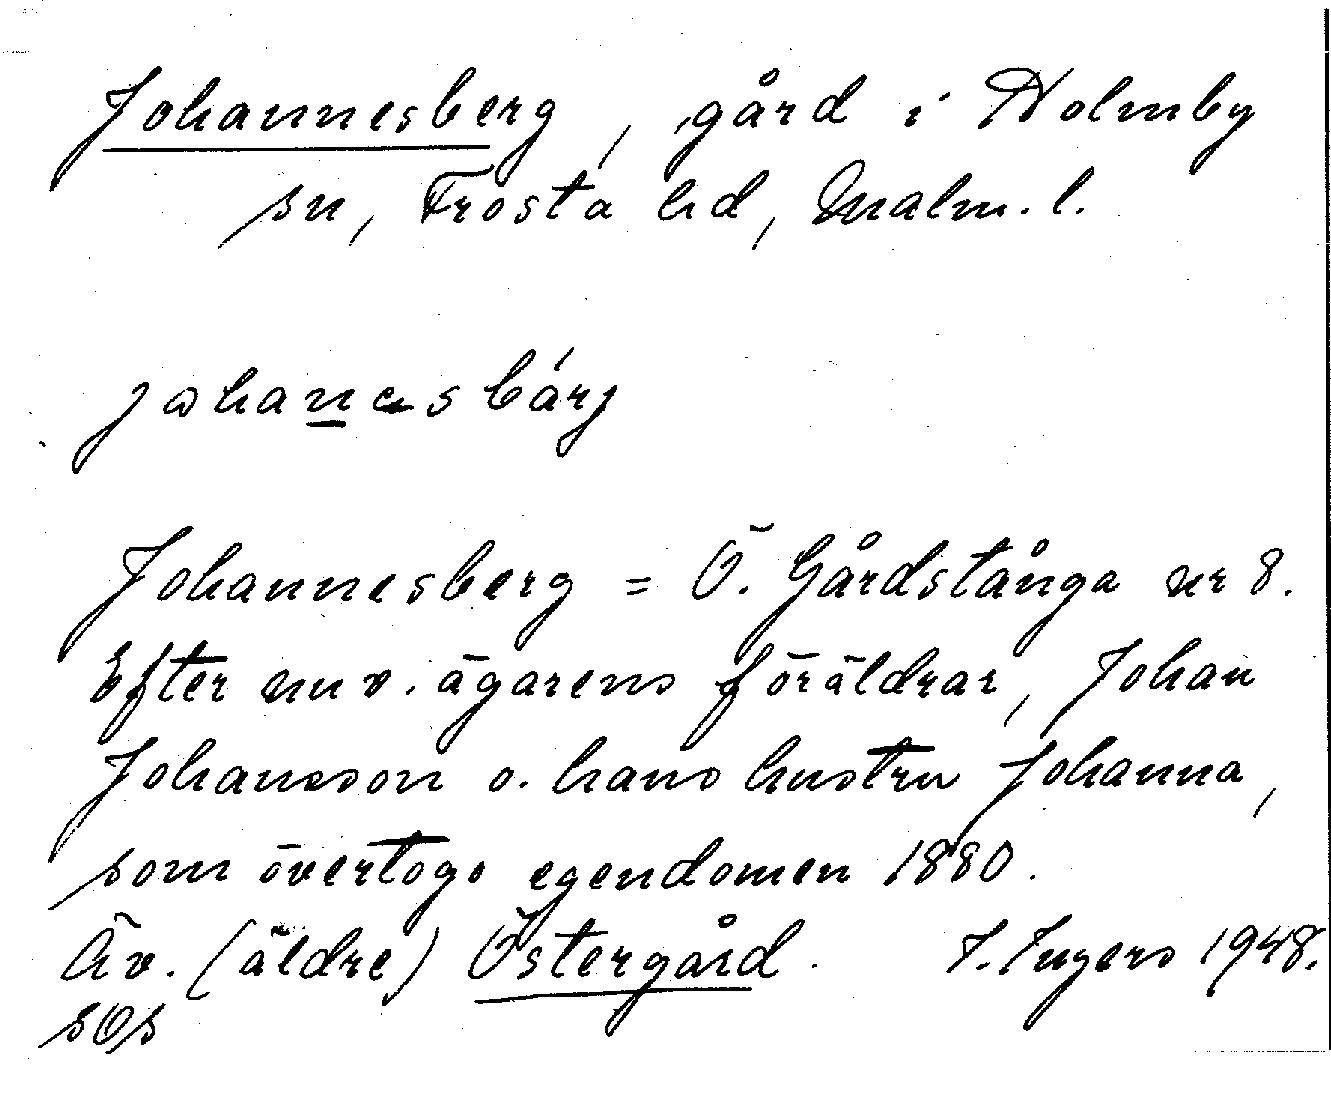 Johannesberg, gård i Holmby
sn, Frosta hd, Malm. l.
johanəsbárj
Johannesberg = Ö. Gårdstånga nr 8.
Efter nuv. ägarens föräldrar, Johan
Johansson o. hans hustru Johanna,
som övertogo egendomen 1880.
Äv. (äldre) Östergård. I. Ingers 1948.
sOs